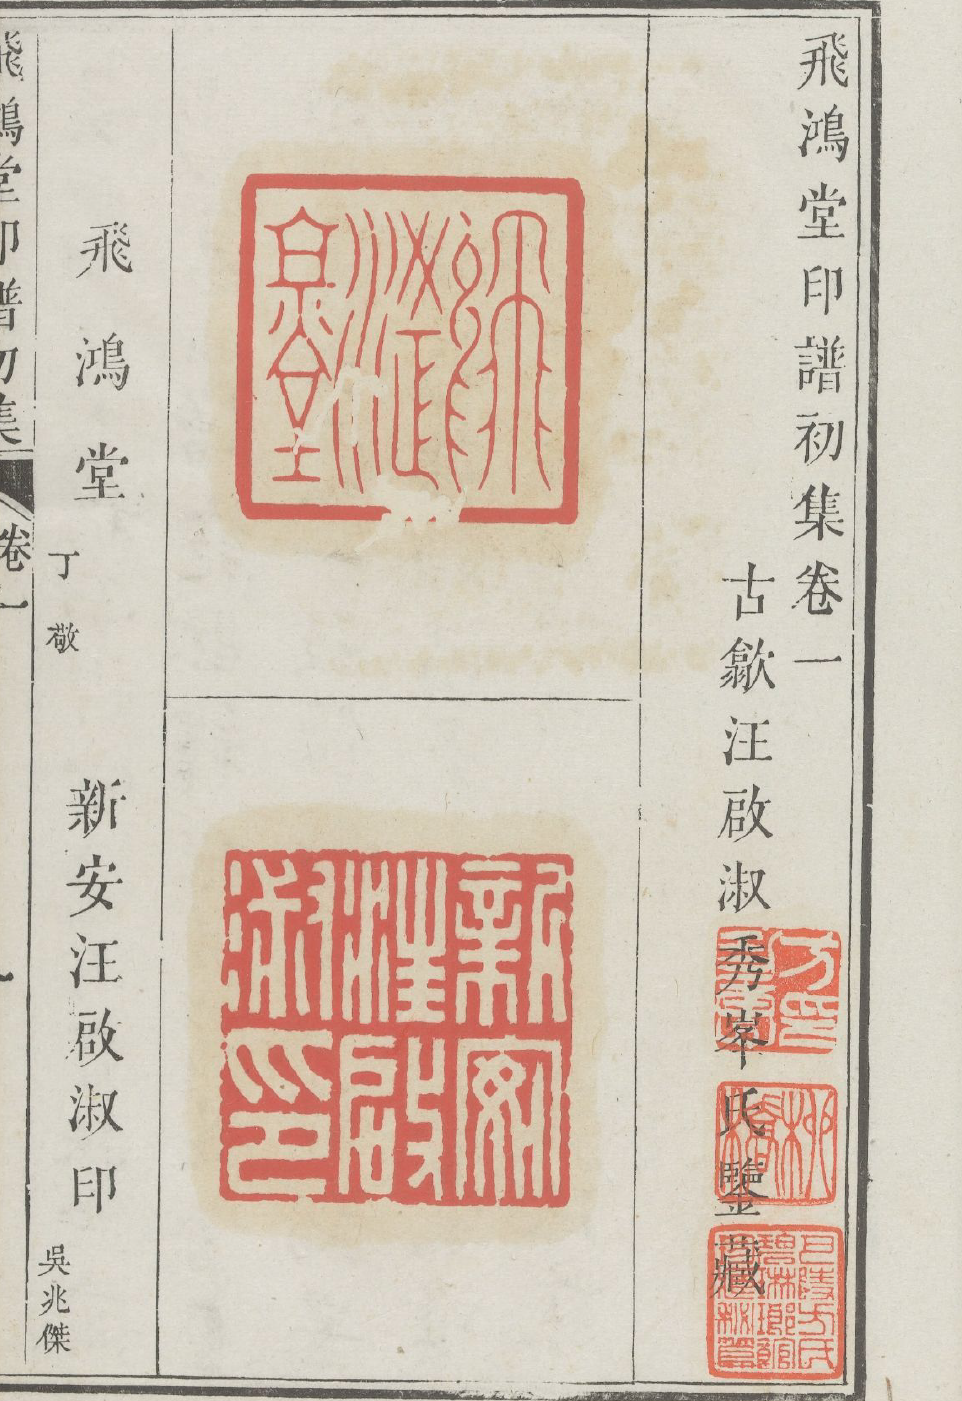 飛鴻堂印譜初集卷一
古歙汪啟淑秀峯氏鑒藏
飛鴻堂
新安汪啟淑印
飛鴻堂
丁敬
新安汪啟淑印
吳兆傑
飛鴻堂印譜初集
卷一